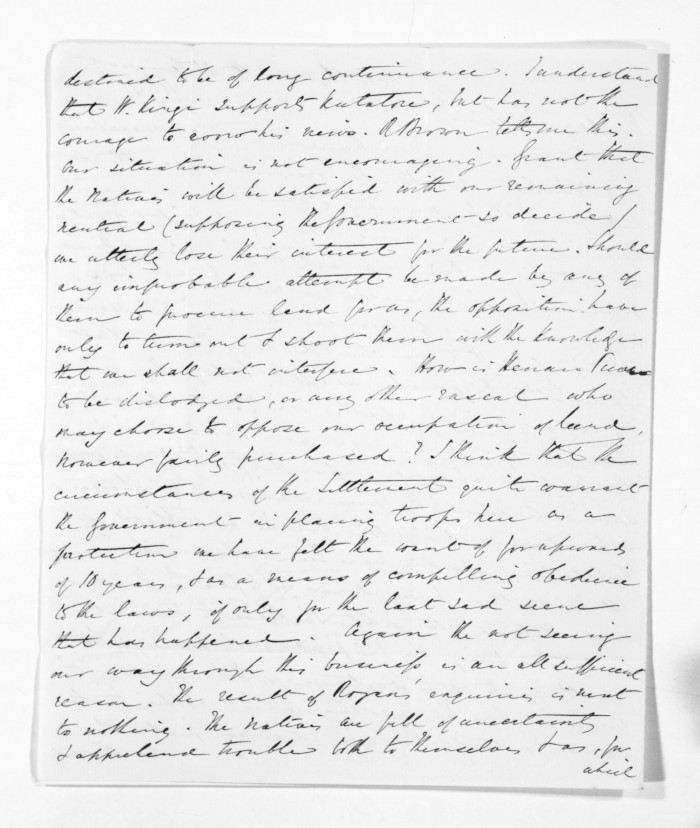 destined to be of long continuance. I understand
that W. Kingi supports Katatore, but has not the
courage to avow his views. R Brown tells me this.
Our situation is not encouraging. Grant that
the Natives will be satisfied with our remaining
neutral (supposing the Government so decide)
we utterly lose their interest for the future. Should
any improbable attempt be made by any of
them to procure land for us, the opposition have
only to turn out & shoot them with the knowledge
that we shall not interfere. How is
to be dislodged, or any other rascal who
may choose to oppose our occupation of land,
however fairly purchased? I think that the
circumstances of the Settlement quite warrant
the Government in placing troops here as a
protection we have felt the want of for upwards
of 10 years, & as a means of compelling obedience
to the laws, if only for the last sad scene
that has happened. Again the not seeing
our way through this business is an all sufficient
reason. The result of Rogan's enquiries is next
to nothing. The Natives are full of uncertainty
& apprehend trouble both to themselves & us, for
while